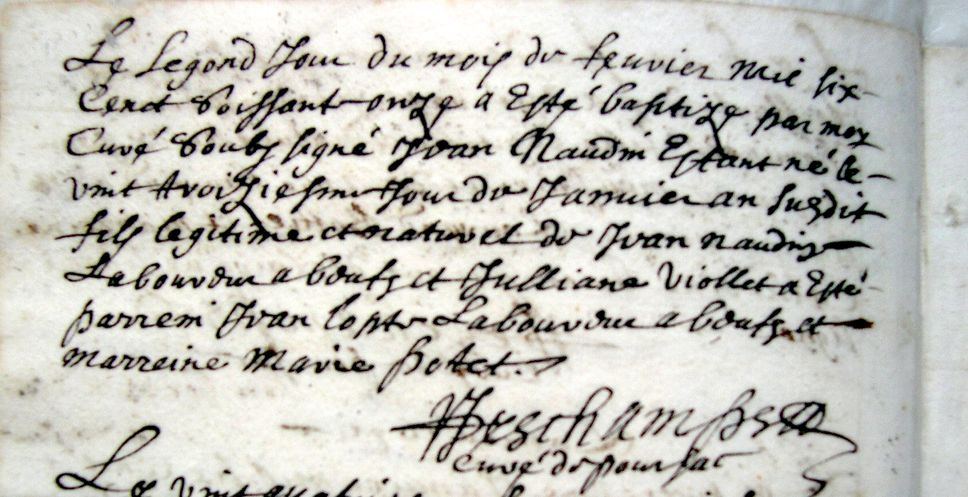 Le segond jour du mois de feuvier mil six
Cent soissante onze a esté baptize par moy
Curé soubs signé Jean Naudin estant né le
vint troiziesme jour de Janvier an susdit
fils legitime et naturel de Jean naudin
Laboureur a beufs et Julliane viollet a esté
parrein Jean lopte Laboureur a beufs et
marreine Marie petet.
Deschamps
curé de poursac
Le vint quatrie